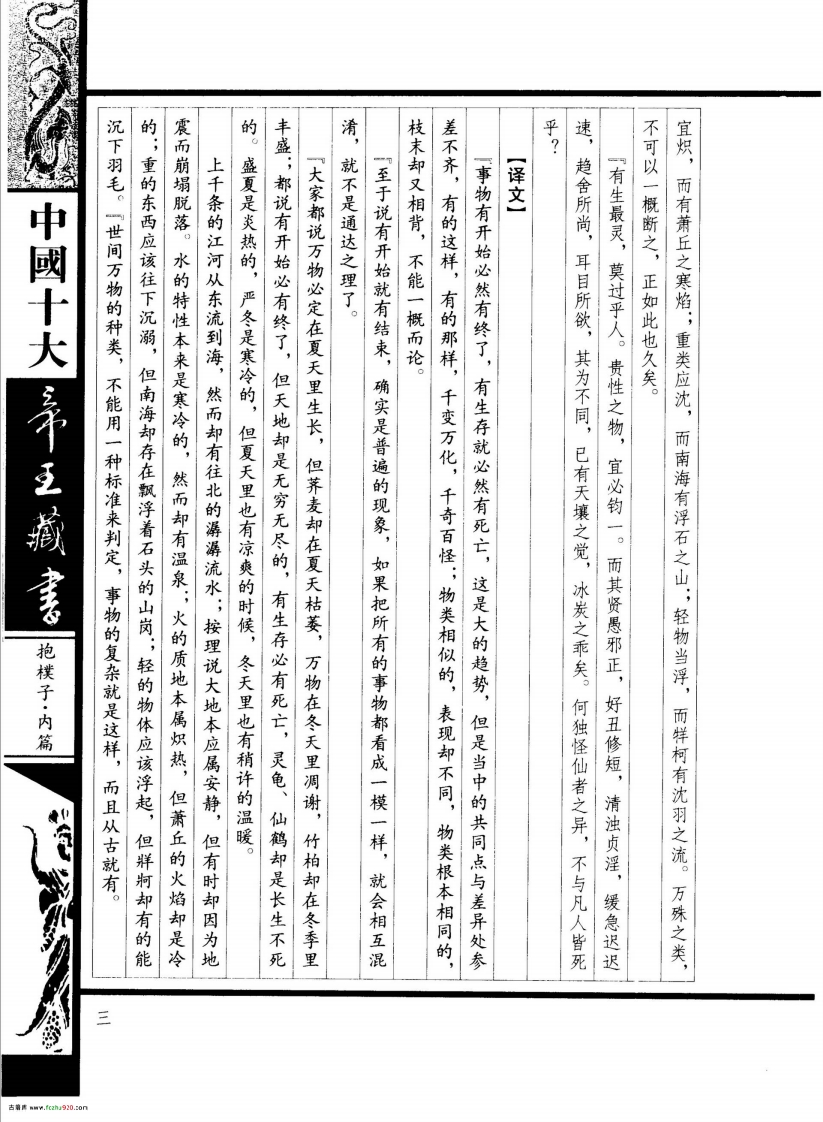 宜炽，而有萧丘之寒焰；重类应沈，而南海有浮石之山；轻物当浮，而牂柯有沈羽之流。万殊之类，
不可以一概断之，正如此也久矣。
『有生最灵，莫过乎人。贵性之物，宜必钧一。而其贤愚邪正，好丑修短，清浊贞淫，缓急迟迟
速，趋舍所尚，耳目所欲，其为不同，已有天壤之觉，冰炭之乖矣。何独怪仙者之异，不与凡人皆死
乎？
【译文】
『事物有开始必然有终了，有生存就必然有死亡，这是大的趋势，但是当中的共同点与差异处参
差不齐，有的这样，有的那样，千变万化，千奇百怪；物类相似的，表现却不同，物类根本相同的，
枝末却又相背，不能一概而论。
『至于说有开始就有结束，确实是普遍的现象，如果把所有的事物都看成一模一样，就会相互混
淆，就不是通达之理了。
『大家都说万物必定在夏天里生长，但荞麦却在夏天枯萎，万物在冬天里凋谢，竹柏却在冬季里
丰盛；都说有开始必有终了，但天地却是无穷无尽的，有生存必有死亡，灵龟、仙鹤却是长生不死
的。盛夏是炎热的，严冬是寒冷的，但夏天里也有凉爽的时候，冬天里也有稍许的温暖。
上千条的江河从东流到海，然而却有往北的潺潺流水；按理说大地本应属安静，但有时却因为地
震而崩塌脱落。水的特性本来是寒冷的，然而却有温泉；火的质地本属炽热，但萧丘的火焰却是冷
的；重的东西应该往下沉溺，但南海却存在飘浮着石头的山岗；轻的物体应该浮起，但牂牁却有的能
沉下羽毛。『世间万物的种类，不能用一种标准来判定，事物的复杂就是这样，而且从古就有。
中國十大
帝王藏書
抱樸子·内篇
三
古籍库 www.fczhu920.com